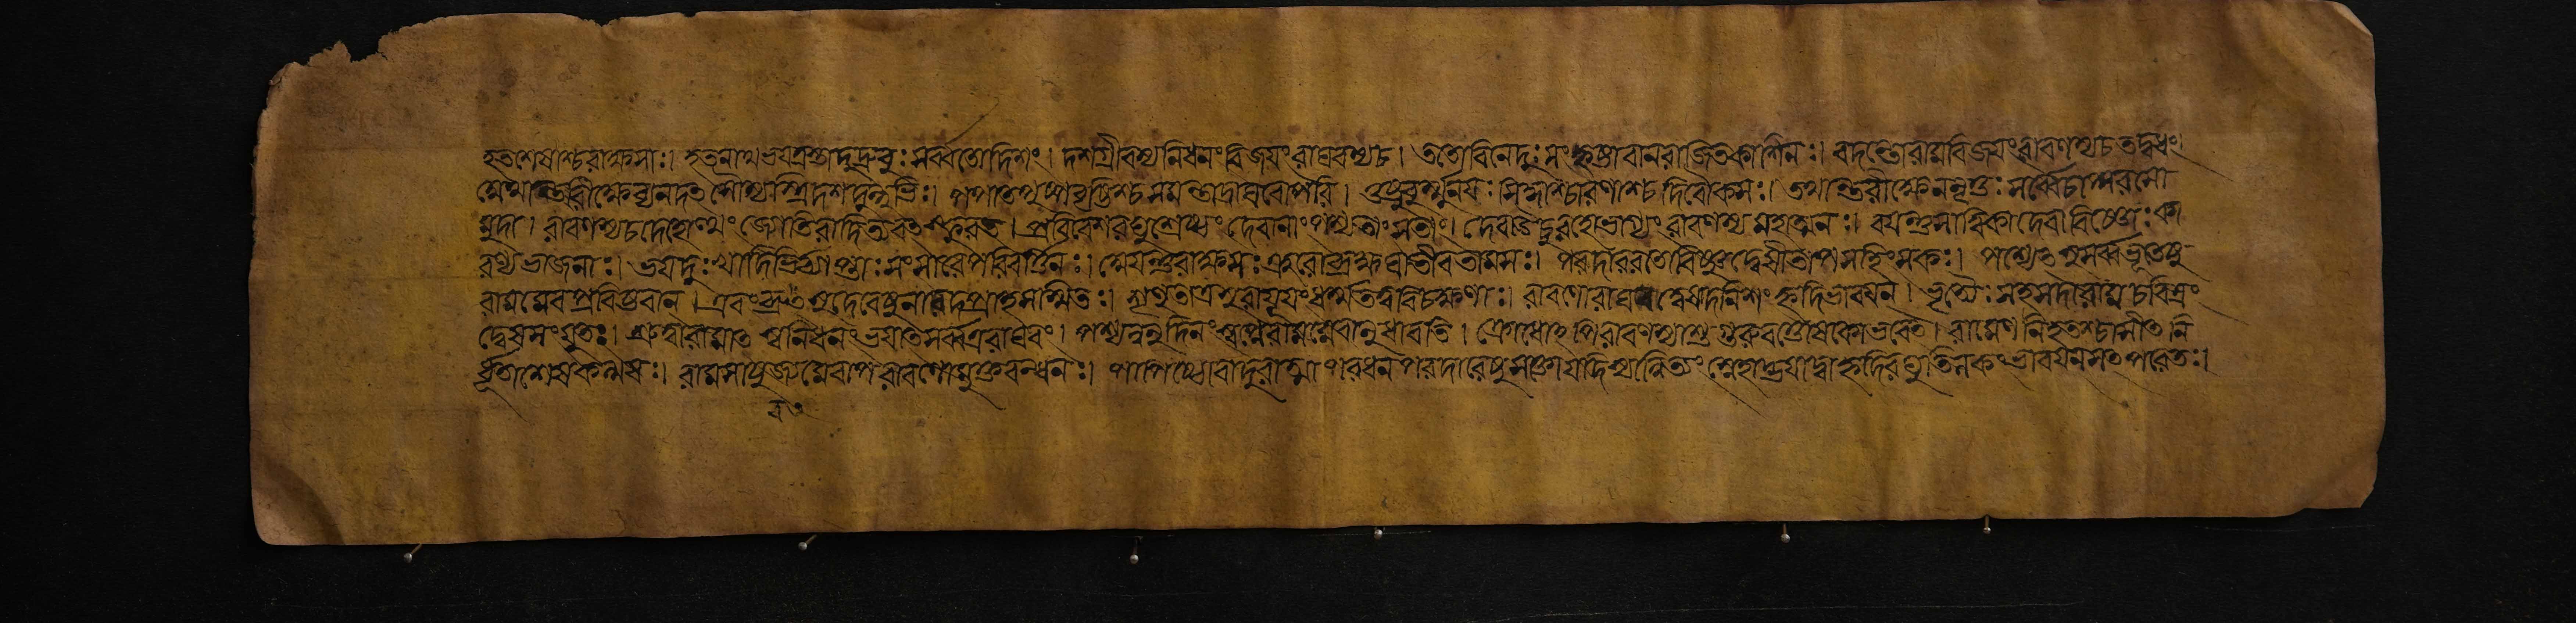 হতশেষাশ্চরাক্ষসাঃ। হতনাথাভয়ত্রস্তাদুদ্রুবুঃসর্ব্বতোদিশং। দশগ্রীবস্যনিধনংবিজয়ংরাঘবস্যচ। ততোবিনেদুঃসংহৃষ্টাবানরাজিতকাশিনঃ। বদন্তোরামবিজয়ংরাবণস্যচতদ্বধং।
অথান্তরীক্ষেব্যনদৎসৌম্যস্ত্রিদশদুন্দুভিঃ। পপাতপুষ্পবৃষ্টিশ্চসমন্তাদ্রাঘবোপরি। তুষ্টুবুর্ম্মুনয়ঃসিদ্ধাশ্চারণাশ্চদিবৌকসঃ। অথান্তরীক্ষেননৃতুঃসর্ব্বেচাপ্সরসো
মুদা। রাবণস্যচদেহোত্থংজ্যোতিরাদিত্যবৎস্ফুরৎ। প্রবিবেশরঘুশ্রেষ্ঠংদেবানাংপশ্যতাংসতাং। দেবাঊচুরহোভাগ্যংরাবণস্যমহাত্মনঃ। বয়ন্তুসাত্ত্বিকাদেবাবিষ্ণোঃকা
রুণ্যভাজনাঃ। ভয়দুঃখাদিভির্ব্যাপ্তাঃসংসারেপরিবর্ত্তিনঃ। অয়ন্তুরাক্ষসঃক্রূরোব্রহ্মহাতীবতামসঃ। পরদাররতোবিষ্ণুদ্বেষীতাপসহিংসকঃ। পশ্যৎসুসর্ব্বভূতেষু
রামমেবপ্রবিষ্টবান্। এবংব্রুবৎসুদেবেষুনারদঃপ্রাহসস্মিতঃ। শৃণুতাত্রসুরাযূয়ংধর্ম্মতত্ত্ববিচক্ষণাঃ। রাবণোরাঘবদ্বেষাদনিশংহৃদিভাবয়ন্। ভৃত্যৈঃসহসদারামচরিত্রং
দ্বেষসংযুতঃ। শ্রুত্বারামাৎস্বনিধনংভয়াৎসর্ব্বত্ররাঘবং। পশ্যন্ননুদিনংস্বপ্নেরামমেবানুধাবতি। ক্রোধোঽপিরাবণস্যাশুগুরুবোধাধিকোভবেৎ। রামেণনিহতশ্চাসীৎনি
র্ধূতাশেষকল্মষঃ। রামসাযুজ্যমেবাপরাবণোমুক্তবন্ধনঃ। পাপিষ্ঠোবাদুরাত্মাপরধনপরদারেষুসক্তোযদিস্যান্নিত্যংস্নেহাদ্ভয়াদ্বাহৃদিরঘুতিলকংভাবয়নসংপরেতঃ।